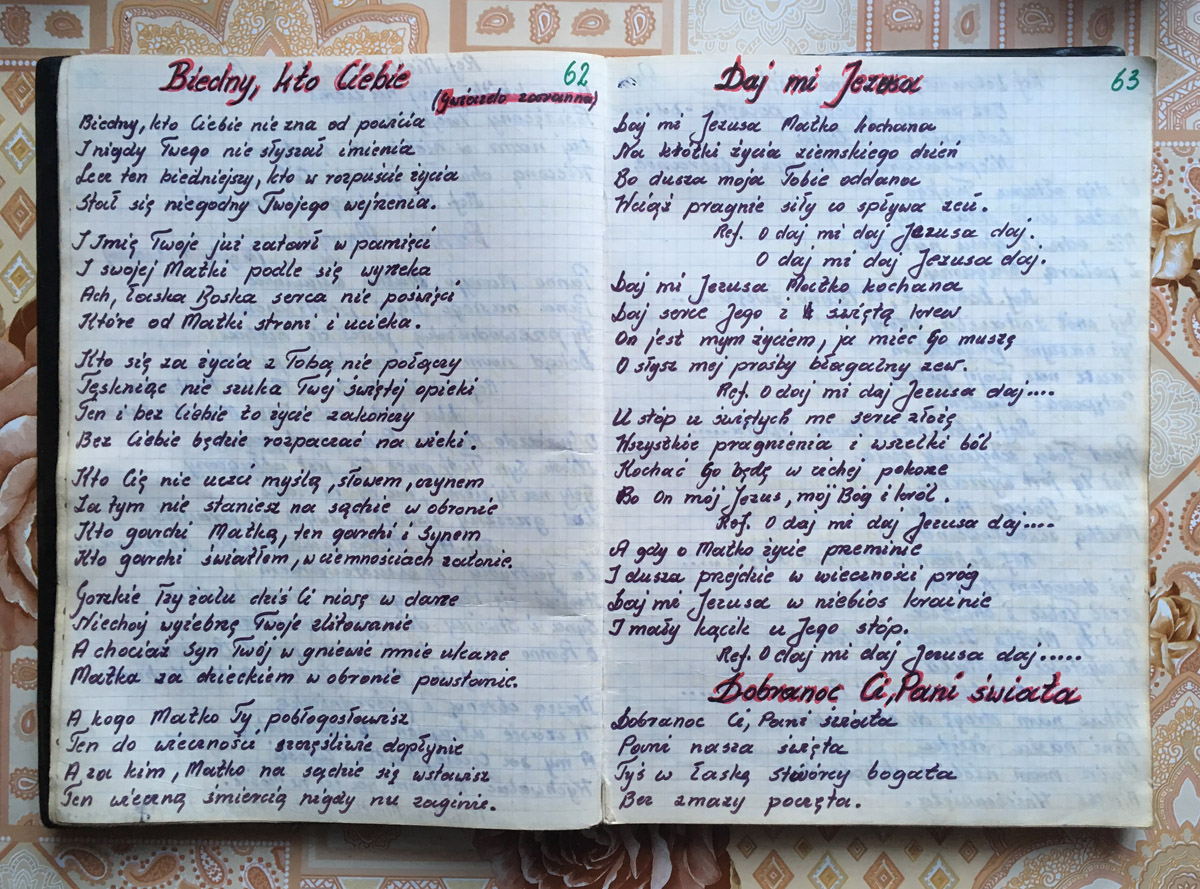 Biedny, kto Ciebie 62
(gwiazdo zaranna)
Biedny, kto Ciebie nie zna od powicia
I nigdy Twego nie słyszał imienia
Lecz ten biedniejszy, kto w rozpuście życia
Stał się niegodny Twojego wejrzenia.
I Imię Twoje już zatarł w pamięci
I swojej Matki podle się wyrzeka
Ach, łaska Boska serca nie poświęci
Które od Matki stroni i ucieka.
Kto się za życia z Tobą nie połączy
Tęskniąc nie szuka Twej świętej opieki
Ten i bez Ciebie to życie zakończy
Bez Ciebie będzie rozpaczać na wieki.
Kto Cię nie uczci myślą, słowem, czynem
Za tym nie staniesz na sądzie w obronie
Kto gardzi Matką, ten gardzi i Synem
Kto gardzi światłem, w ciemnościach zatonie.
Gorzkie łzy żalu dziś Ci niosę w darze
Niechaj wyjebrzę Twoje zlitowanie
A chociaż Syn Twój w gniewie mnie ukarze
Matka za dzieckiem w obronie powstanie.
A kogo Matko Ty pobłogosławisz
Ten do wieczności szczęśliwie dopłynie
A za kim, Matko na sądzie się wstawisz
Ten wieczną śmiercią nigdy nie zaginie.
Daj mi Jezusa 63
Daj mi Jezusa Matko kochana
Na krótki życia ziemskiego dzień
Bo dusza moja Tobie oddana
Wciąż pragnie siły co spływa zeń.
Ref. O daj mi daj Jezusa daj.
O daj mi daj Jezusa daj.
Daj mi Jezusa Matko kochana
Daj serce Jego i świętą krew
On jest mym życiem, ja mieć Go muszę
O słysz mej prośby błagalny zew.
Ref. O daj mi daj Jezusa daj....
U stóp u świętych me serce złożę
Wszystkie pragnienia i wszelki ból
Kochać Go będę w cichej pokorze
Bo On mój Jezus, mój Bóg i król.
Ref. O daj mi daj Jezusa daj....
A gdy o Matko życie przeminie
I dusza przejdzie w wieczności próg
Daj mi Jezusa w niebios krainie
I mały kącik u Jego stóp.
Ref. O daj mi daj Jezusa daj.....
Dobranoc Ci, Pani świata
Dobranoc Ci, Pani świata
Pani nasza święta
Tyś w łaską stwórcy bogata
Bez zmazy poczęta.